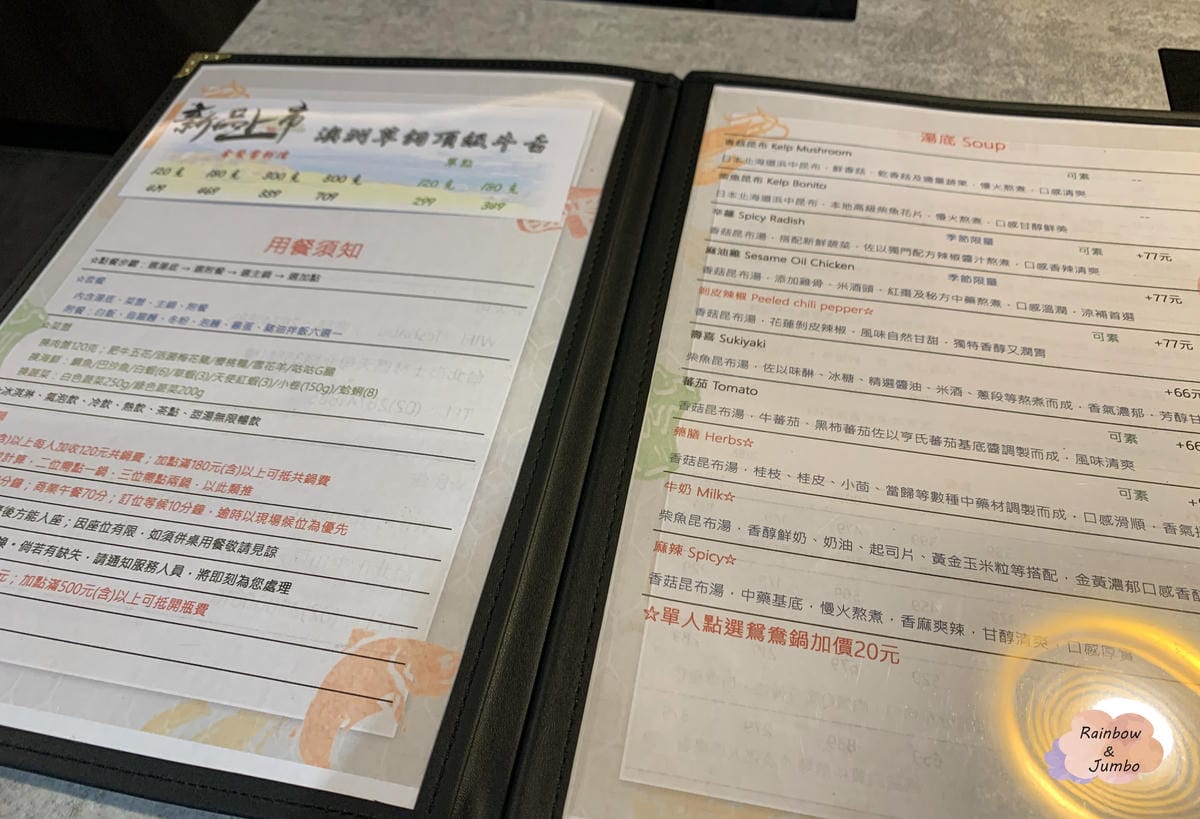 新品上市 澳洲草飼頂級牛舌
套餐實鮮價 單點
120克 180克 300克 500克 120克 180克
619 669 889 709 299 369
用餐須知
☆點餐步驟：選湯底→選附餐→選主鍋→選加點
☆套餐
內含湯底、菜盤、主鍋、附餐
附餐：白飯、烏龍麵、冬粉、泡麵、雞蛋、豬油拌飯六選一
☆菜盤
換肉盤120克：肥牛五花/
換海鮮：鯛魚/巴沙魚/白蝦(6)/草蝦(3)/天使紅蝦(3)/小卷(150g)/蛤蜊(8)
換蔬菜：白色蔬菜250g/綠色蔬菜200g
冰淇淋、氣泡飲、冷飲、熱飲、茶點、甜湯無限暢飲
含)以上每人加收120元共鍋費；加點滿180元(含)以上可抵共鍋費
計算，二位需點一鍋，三位需點兩鍋，以此類推
分鐘；商業午餐70分；訂位等候10分鐘，逾時以現場候位為優先
後方能入座；因座位有限，如須併桌用餐敬請見諒
倘若有缺失，請通知服務人員，將即刻為您處理
元；加點滿500元(含)以上可抵開瓶費
湯底 Soup
香菇昆布 Kelp Mushroom 可素 --
日本北海道浜中昆布，鮮香菇、乾香菇及適量蔬果，慢火熬煮，口感清爽
柴魚昆布 Kelp Bonito --
日本北海道浜中昆布，本地高級柴魚花片，慢火熬煮，口感甘醇鮮美
辛蘿 Spicy Radish 季節限量 可素 +77元
香菇昆布湯，搭配新鮮蔬菜，佐以獨門配方辣椒醬汁熬煮，口感香辣清爽
麻油雞 Sesame Oil Chicken 季節限量 +77元
香菇昆布湯，添加雞骨、米酒頭、紅棗及秘方中藥熬煮，口感溫潤，涼補首選
剝皮辣椒 Peeled chili pepper☆ 可素 +77元
香菇昆布湯，花蓮剝皮辣椒，風味自然甘甜，獨特香醇又潤胃
壽喜 Sukiyaki +66元
柴魚昆布湯，佐以味醂、冰糖、精選醬油、米酒、蔥段等熬煮而成，香氣濃郁，芳醇甘
蕃茄 Tomato 可素 +66
香菇昆布湯，牛蕃茄、黑柿蕃茄佐以亨氏蕃茄基底醬調製而成，風味清爽
藥膳 Herbs☆ 可素
香菇昆布湯，桂枝、桂皮、小茴、當歸等數種中藥材調製而成，口感滑順，香氣
牛奶 Milk☆
柴魚昆布湯，香醇鮮奶、奶油、起司片、黃金玉米粒等搭配，金黃濃郁口感香醇
麻辣 Spicy☆
香菇昆布湯，中藥基底，慢火熬煮，香麻爽辣，甘醇清爽，口感厚實
☆單人點選鴛鴦鍋加價20元
Rainbow
&
Jumbo